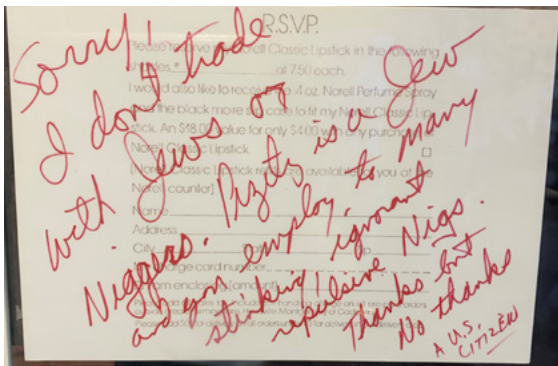 R.S.V.P.
Please reserve Norell Classic Lipstick in the following
shades * at 7.50 each.
I would also like to receive .4 oz. Norell Perfume Spray
the black to fit my Norell Classic Lip
stick. An $18.00 value for only $4.00 with any purchase
Norell Classic Lipstick.
[Norell Classic Lipstick available to you at the
Norell counter]
Name
Address
City State
charge card number
enclosed [amount]
Sorry!
I don't trade
with Jews or
Niggers. Pizitz is a Jew
and you employ to many
stinking, ignorant
repulsive Nigs.
Thanks but
No thanks
A U.S.
CITIZEN